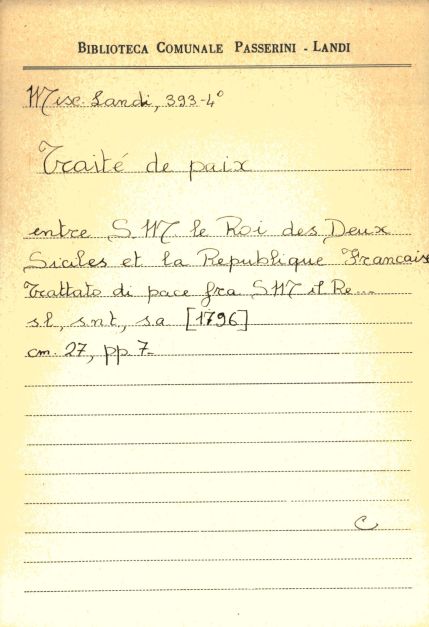 BIBLIOTECA COMUNALE PASSERINI - LANDI
Misc. Landi, 393-4°
Traité de paix
entre S.M le Roi des Deux
Siciles et la Republique Francaise
Trattato di pace fra S M il Re...
s.l, s.n.t, s.a [1796]
cm. 27, pp. 7
C